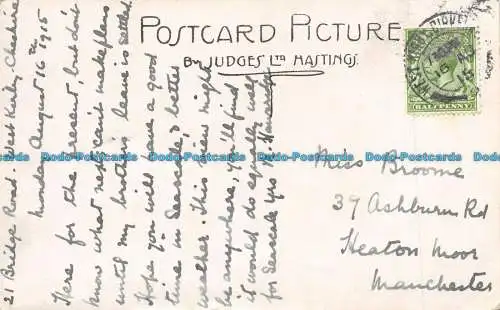 POSTCARD PICTURE
By JUDGES LTD HASTINGS.
HALFPENNY
21 Bridge Road West Kirby Cheshire
Monday August 16th 1915
Here for the present, but don't
know what next. Can't make plans
until my brother's leave is settled.
Hope you will have a good
time in Seascale, & better
weather. This view might
be anywhere, you'll find
it would do equally well
for Seascale
Miss Broome
39 Ashburn Rd
Heaton Moor
Manchester
Dodo-Postcards Dodo-Postcards Dodo-Postcards Dodo-Postcards Dodo-Postcards